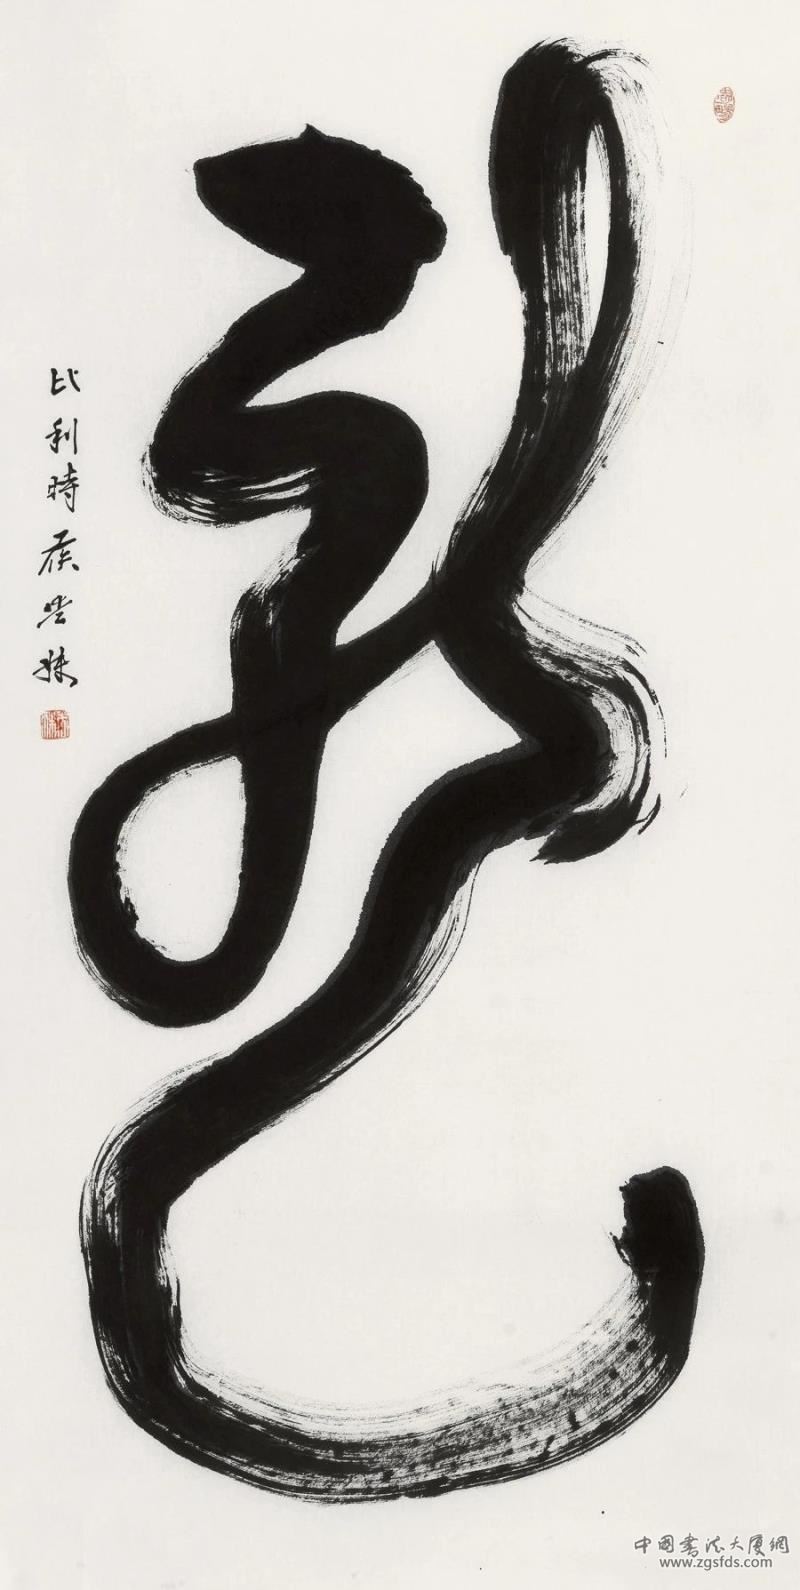 龍
比利時 侯登妹
中國書法大厦網
www.zgsfds.com